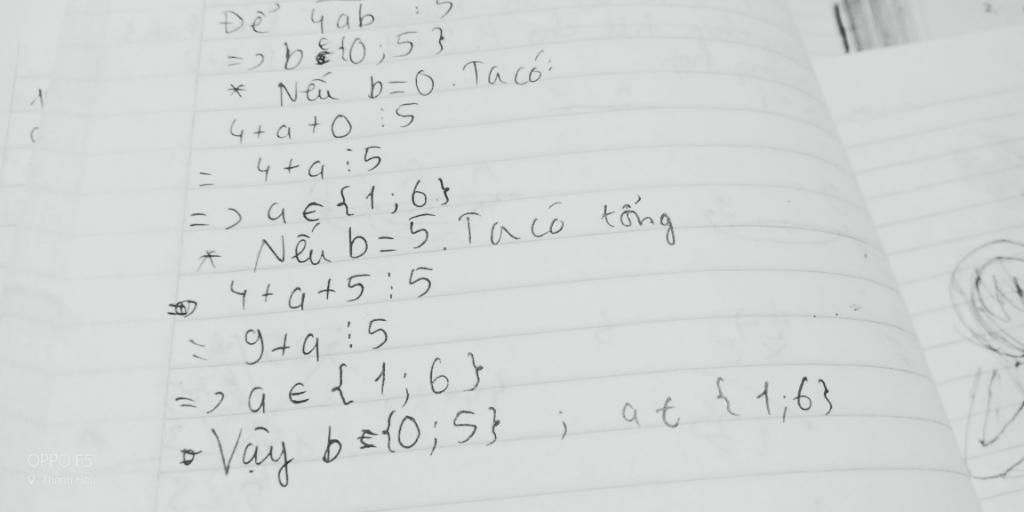 Để 4ab ⋮ 5
=> b ∈ {0 ; 5 }
* Nếu b = 0 . Ta có:
4 + a + 0 ⋮ 5
= 4 + a ⋮ 5
=> a ∈ { 1 ; 6 }
* Nếu b = 5. Ta có tổng
4 + a + 5 ⋮ 5
= 9 + a ⋮ 5
=> a ∈ { 1 ; 6 }
Vậy b ∈ {0 ; 5} ; a ∈ { 1 ; 6 }
OPPO F5